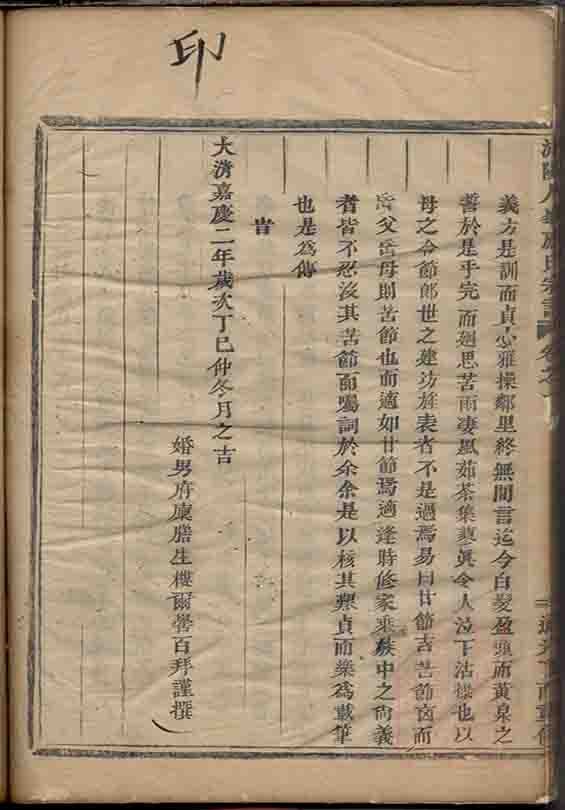 印
義方是訓而貞心雅操鄰里終無間言迄今白髮盈頭而黃泉之
誓於是乎完而廻思苦雨凄風茹荼集蓼眞令人泣下沾襟也以
母之令節郎世之建坊旌表者不是過焉易曰甘節吉苦節凶而
岳父岳母則苦節也而適如甘節焉適逢時修家乘族中之尙義
者皆不忍沒其苦節而囑詞於余余是以核其堅貞而樂爲載筆
也是爲傳
旹
大淸嘉慶二年歲次丁巳仲冬月之吉
婚男府廩膳生樓爾譽百拜謹撰